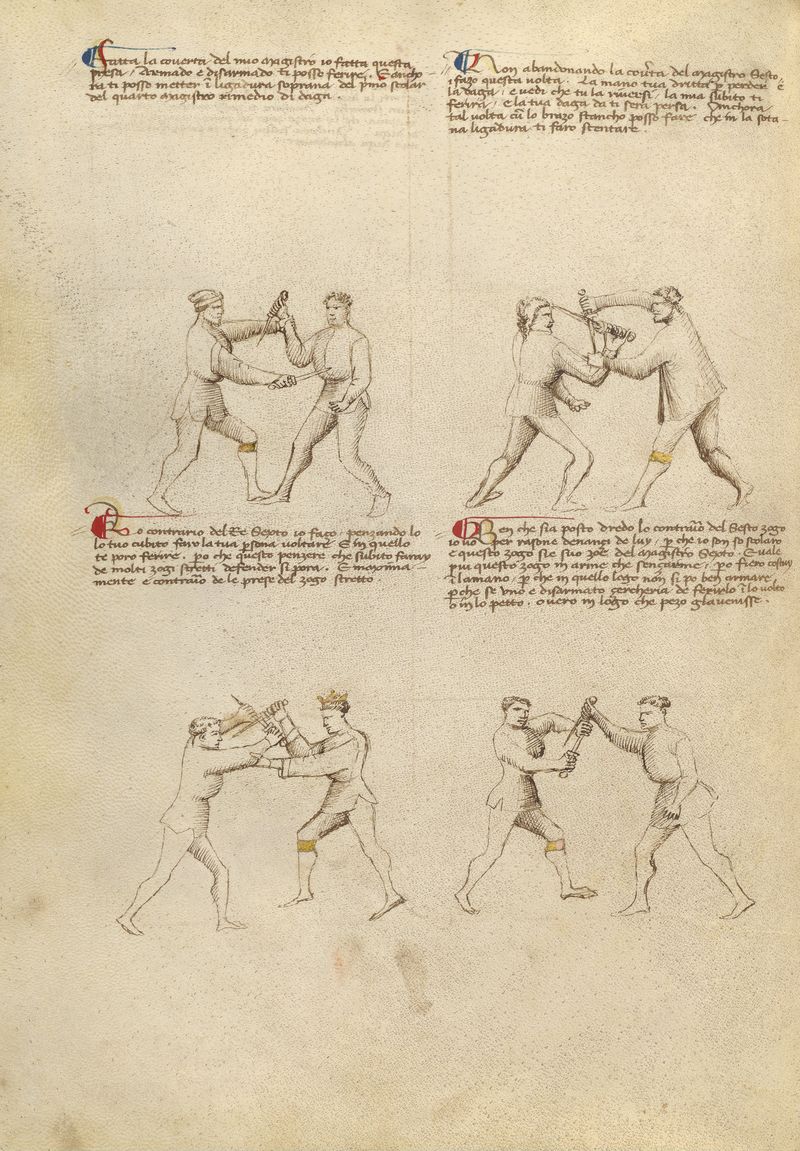 Fatta la coverta del mio magistro io fatta questa
presa / Armado e disarmado ti posso ferire. E ancho-
ra ti posso metter ī ligadura soprana del p̄mo scolar
del quarto magistro rimedio di daga.
Non abandonando la cov̄ta del magistro Sesto,
i fazo questa volta. La mano tua dritta p̱ perder è
la daga, e vedi che tu la riversi, la mia subito ti
ferira, e la tua daga da ti sera persa. Anchora
tal volta cū lo brazo stancho posso fare che in la sota-
na ligadura ti faro stentare.
Lo contrario del Re Sexto io faço, penzando lo
lo tuo cubito faro la tua p̱sona voltare E in quello
te poro ferire, p̱o che questo penzere che subito faray
de molti zogi stretti defender si pora. E maxima-
mente e contraū de le prese del zogo stretto.
Ben che sia posto dredo lo contraū del Sesto zogo
io vo per rasone denanci de luy, p̱ che io son so scolaro
e questo zogo sie suo zoe del magistro Sexto. E vale
piu questo zogo in arme che sençarme, p̱o fiero costuy
ī la mano, p̱ che in quello logo non si po ben armare,
p̱che se uno e disarmato çercheria de ferirlo ī lo volto
o in lo petto, overo in logo che pezo glavenisse.